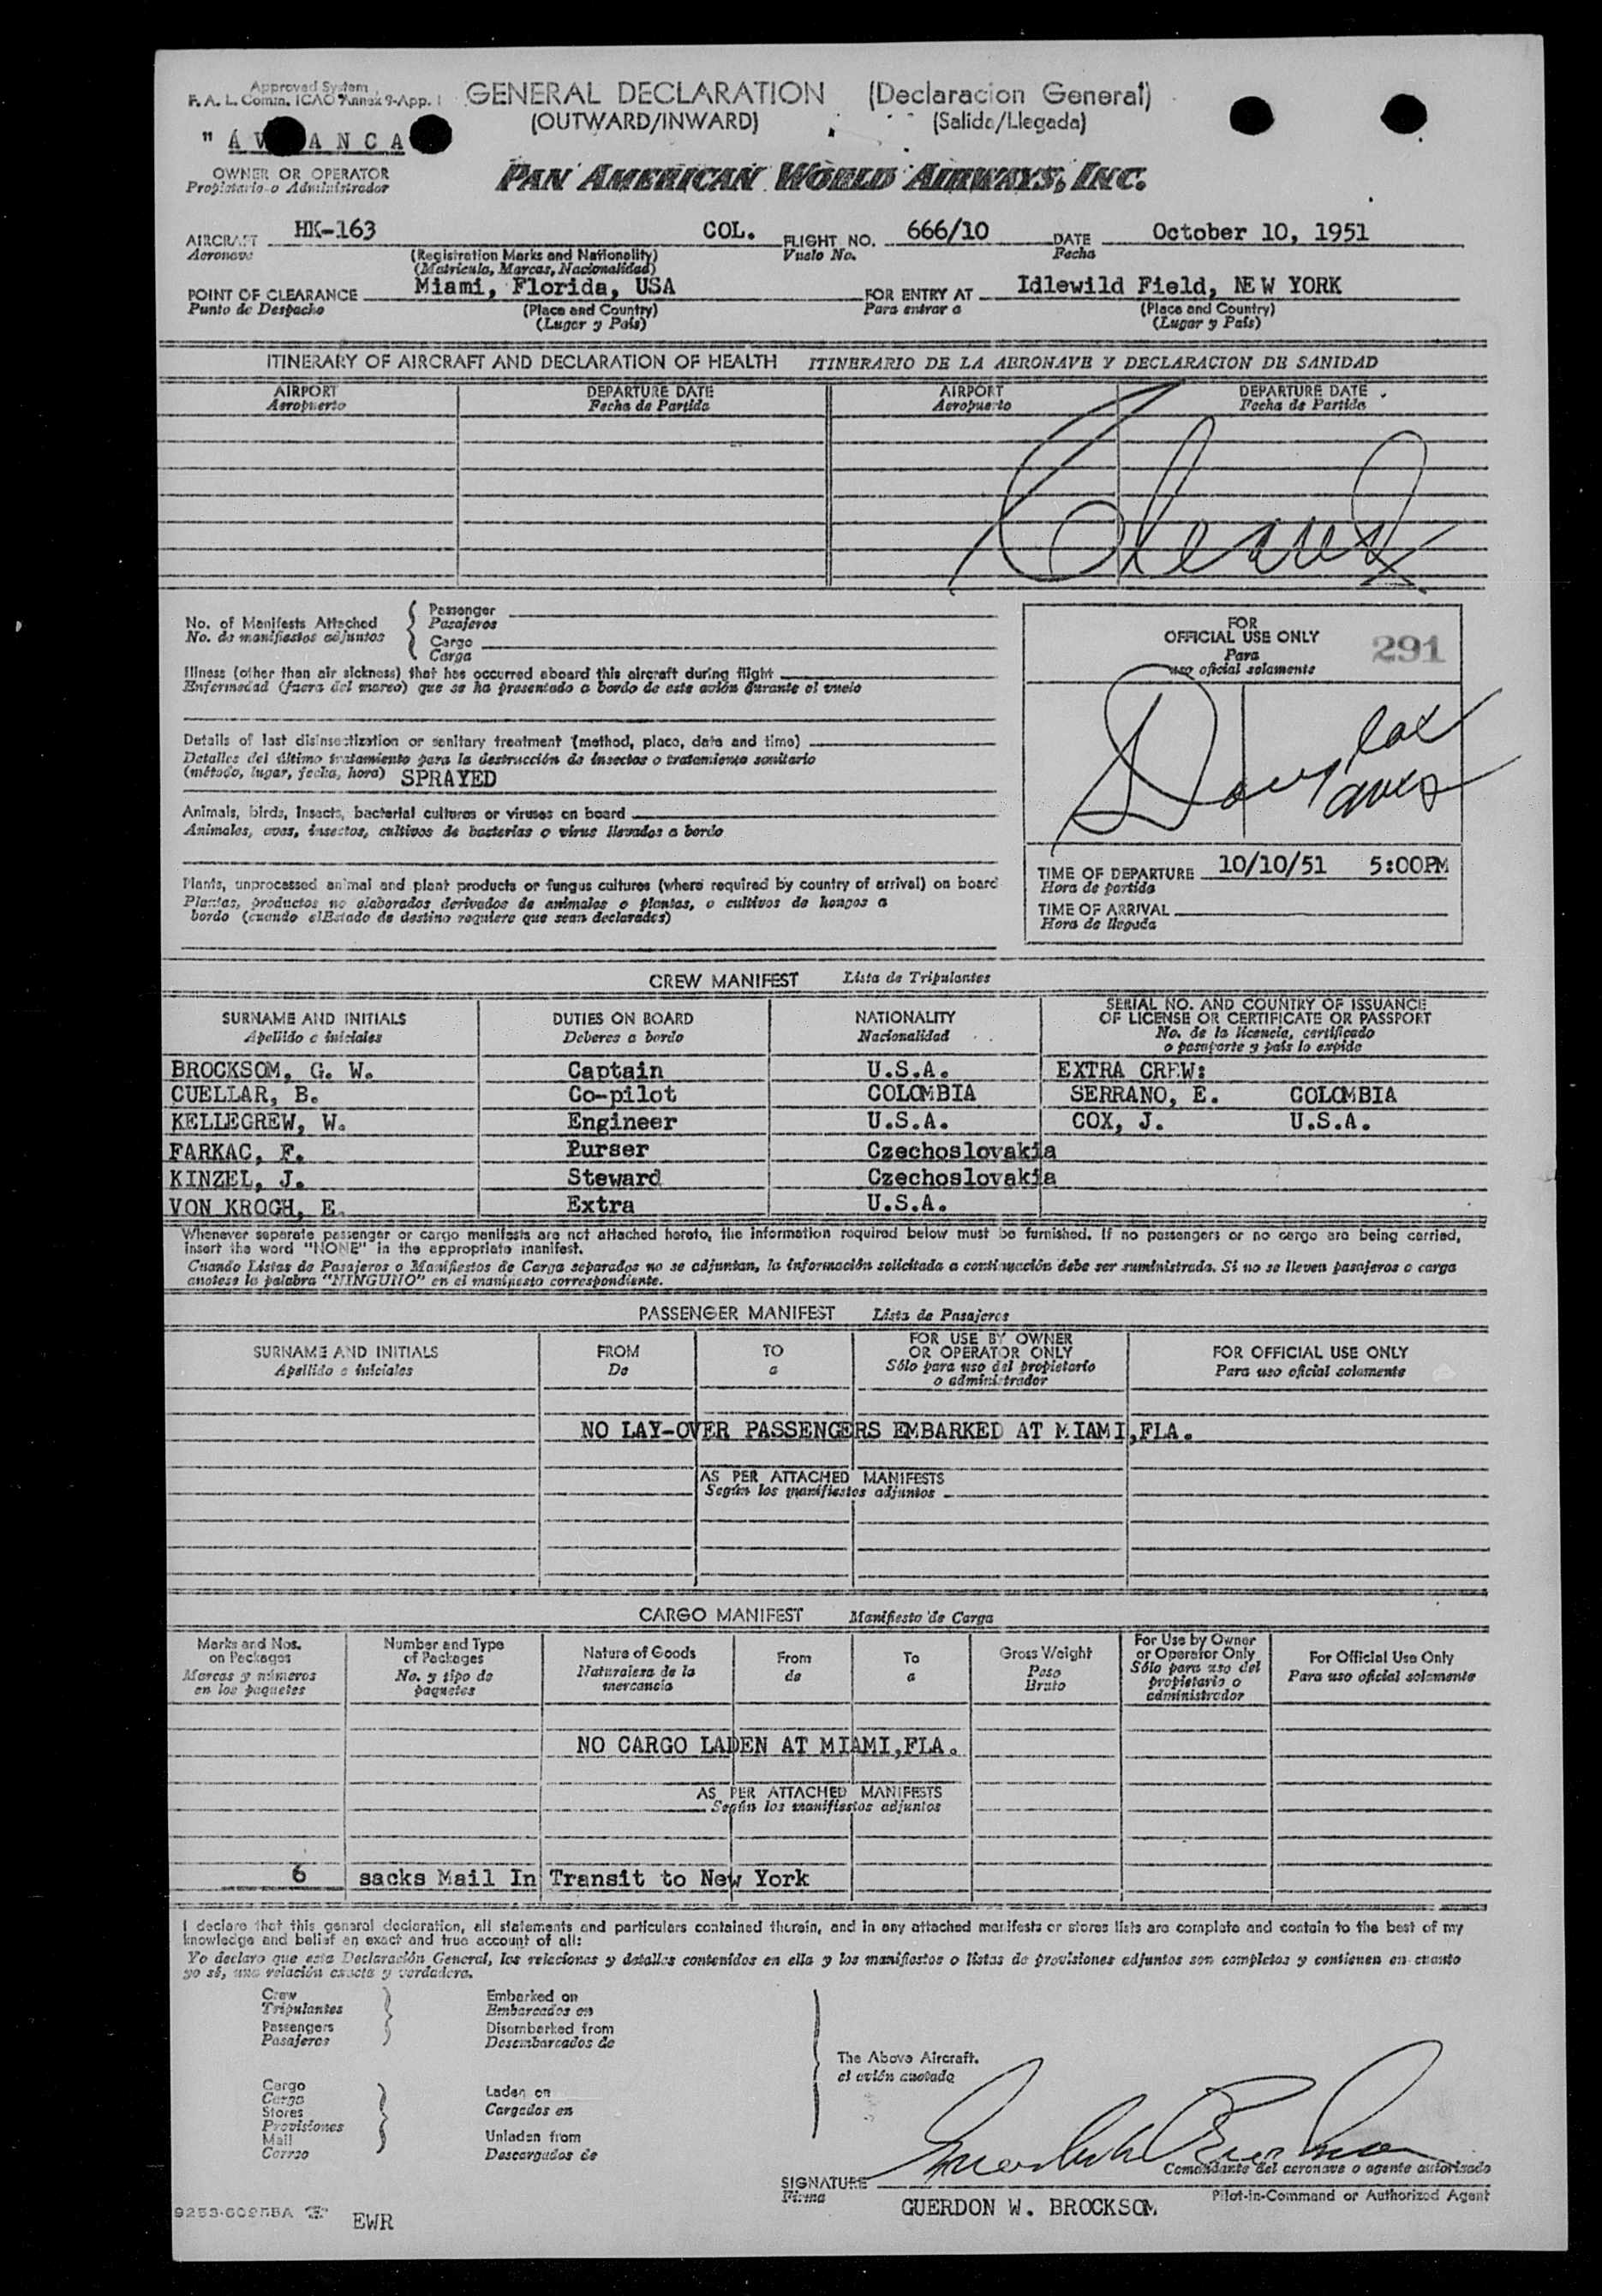 Approved System
F. A. L. Comm. ICAO Annex 9-App. I
GENERAL DECLARATION (Declaracion General)
(OUTWARD/INWARD) (Salida/Llegada)
" A V ANCA
OWNER OR OPERATOR
Propietario o Administrador
PAN AMERICAN WORLD AIRWAYS, INC.
AIRCRAFT HK-163 COL. FLIGHT NO. 666/10 DATE October 10, 1951
Aeronave (Registration Marks and Nationality) Vuelo No. Fecha
(Matricula, Marcas, Nacionalidad)
POINT OF CLEARANCE Miami, Florida, USA FOR ENTRY AT Idlewild Field, NEW YORK
Punto de Despacho (Place and Country) Para entrar a (Place and Country)
(Lugar y País) (Lugar y País)
ITINERARY OF AIRCRAFT AND DECLARATION OF HEALTH ITINERARIO DE LA AERONAVE Y DECLARACION DE SANIDAD
AIRPORT DEPARTURE DATE AIRPORT DEPARTURE DATE
Aeropuerto Fecha de Partida Aeropuerto Fecha de Partida
No. of Manifests Attached
No. de manifiestos adjuntos
Passenger
Pasajeros
Cargo
Carga
Illness (other than air sickness) that has occurred aboard this aircraft during flight
Enfermedad (fuera del mareo) que se ha presentado a bordo de este avión durante el vuelo
Details of last disinsectization or sanitary treatment (method, place, date and time)
Detalles del último tratamiento para la destrucción de insectos o tratamiento sanitario
(método, lugar, fecha, hora) SPRAYED
Animals, birds, insects, bacterial cultures or viruses on board
Animales, aves, insectos, cultivos de bacterias o virus llevados a bordo
Plants, unprocessed animal and plant products or fungus cultures (where required by country of arrival) on board
Plantas, productos no elaborados derivados de animales o plantas, o cultivos de hongos a
bordo (cuando elEstado de destino requiere que sean declarados)
FOR
OFFICIAL USE ONLY 291
Para
uso oficial solamente
TIME OF DEPARTURE 10/10/51 5:00PM
Hora de partida
TIME OF ARRIVAL
Hora de llegada
CREW MANIFEST Lista de Tripulantes
SURNAME AND INITIALS DUTIES ON BOARD NATIONALITY SERIAL NO. AND COUNTRY OF ISSUANCE
OF LICENSE OR CERTIFICATE OR PASSPORT
Apellido e iniciales Deberes a bordo Nacionalidad No. de la licencia, certificado
o pasaporte y país lo expide
BROCKSOM, G. W. Captain U.S.A. EXTRA CREW:
CUELLAR, B. Co-pilot COLOMBIA SERRANO, E. COLOMBIA
KELLEGREW, W. Engineer U.S.A. COX, J. U.S.A.
FARKAC, F. Purser Czechoslovakia
KINZEL, J. Steward Czechoslovakia
VON KROGH, E. Extra U.S.A.
Whenever separate passenger or cargo manifests are not attached hereto, the information required below must be furnished. If no passengers or no cargo are being carried,
insert the word "NONE" in the appropriate manifest.
Cuando Listas de Pasajeros o Manifiestos de Carga separados no se adjuntan, la información solicitada a continuación debe ser suministrada. Si no se lleven pasajeros o carga
anotese la palabra "NINGUNO" en el manifiesto correspondiente.
PASSENGER MANIFEST Lista de Pasajeros
SURNAME AND INITIALS FROM TO FOR USE BY OWNER FOR OFFICIAL USE ONLY
OR OPERATOR ONLY
Apellido e iniciales De a Sólo para uso del propietario Para uso oficial solamente
o administrador
NO LAY-OVER PASSENGERS EMBARKED AT MIAMI,FLA.
AS PER ATTACHED MANIFESTS
Según los manifiestos adjuntos
CARGO MANIFEST Manifiesto de Carga
Marks and Nos. Number and Type Nature of Goods From To Gross Weight For Use by Owner For Official Use Only
on Packages of Packages Naturalesa de la de a Peso or Operator Only Para uso oficial solamente
Marcas y números No. y tipo de mercancía Bruto Sólo para uso del
en los paquetes paquetes propietario o
administrador
NO CARGO LADEN AT MIAMI,FLA.
AS PER ATTACHED MANIFESTS
Según los manifiestos adjuntos
6 sacks Mail In Transit to New York
I declare that this general declaration, all statements and particulars contained therein, and in any attached manifests or stores lists are complete and contain to the best of my
knowledge and belief an exact and true account of all:
Yo declaro que esta Declaración General, las relaciones y detalles contenidos en ella y los manifiestos o listas de provisiones adjuntos son completos y contienen en cuanto
yo sé, una relación exacta y verdadera.
Crew Embarked on
Tripulantes Embarcados en
Passengers Disembarked from
Pasajeros Desembarcados de
The Above Aircraft.
el avión anotado
Cargo Laden on
Carga Cargados en
Stores
Provisiones
Mail Unladen from
Correo Descargados de
Comandante del aeronave o agente autorizado
SIGNATURE
Firma
Pilot-in-Command or Authorized Agent
GUERDON W. BROCKSOM
EWR